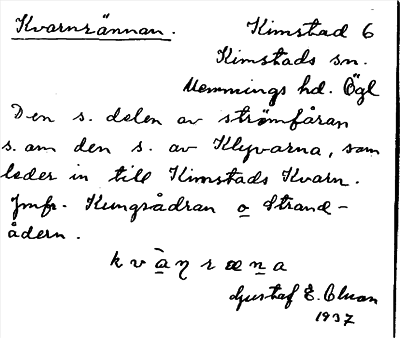 Kvarnrännan.
Kimstad 6
Kimstads sn.
Memmings hd. Ögl
Den s. delen av strömfåran
s. om den s. av Klyvarna, som
leder in till Kimstads Kvarn.
Jmfr. Kungsådran o Strand-
ådern.
kvàn̥ræna
Gustaf E. Olson
1937